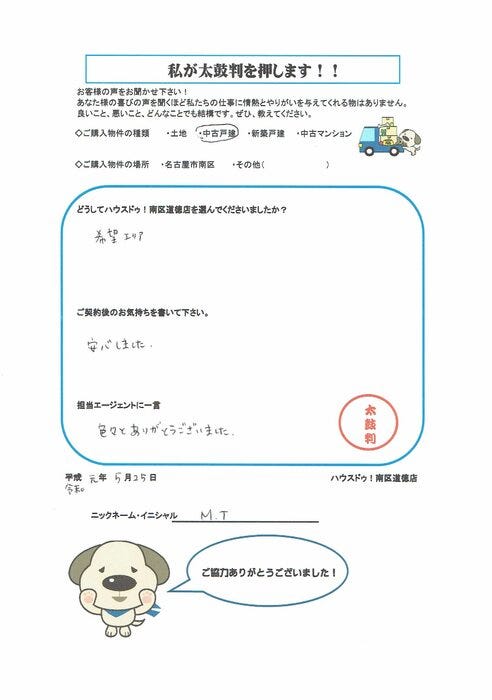 私が太鼓判を押します！！
お客様の声をお聞かせ下さい！
あなた様の喜びの声を聞くほど私たちの仕事に情熱とやりがいを与えてくれる物はありません。
良いこと、悪いこと、どんなことでも結構です。ぜひ、教えてください。
◇ご購入物件の種類 ・土地 ・中古戸建 ・新築戸建 ・中古マンション
◇ご購入物件の場所 ・名古屋市南区 ・その他（ ）
どうしてハウスドゥ！南区道徳店を選んでくださいましたか？
希望エリア
ご契約後のお気持ちを書いて下さい。
安心しました.
担当エージェントに一言
色々とありがとうございました.
太鼓判
平成 元年 5月25日
令和
ハウスドゥ！南区道徳店
ニックネーム・イニシャル M.T
ご協力ありがとうございました！